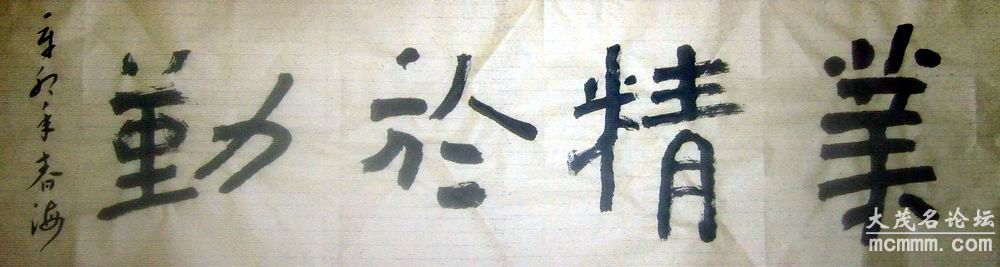 業精於勤
辛卯年春海
大茂名论坛
mcmmm.com